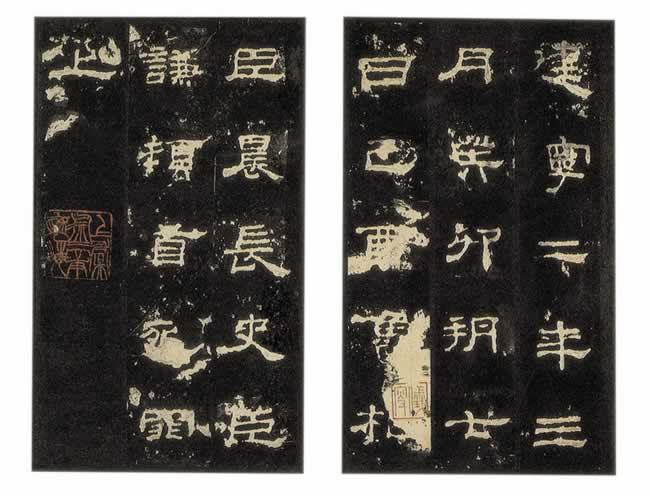 建寧二年三
月癸卯朔七
日己酉魯相
臣晨長史臣
謙頓首死罪
上